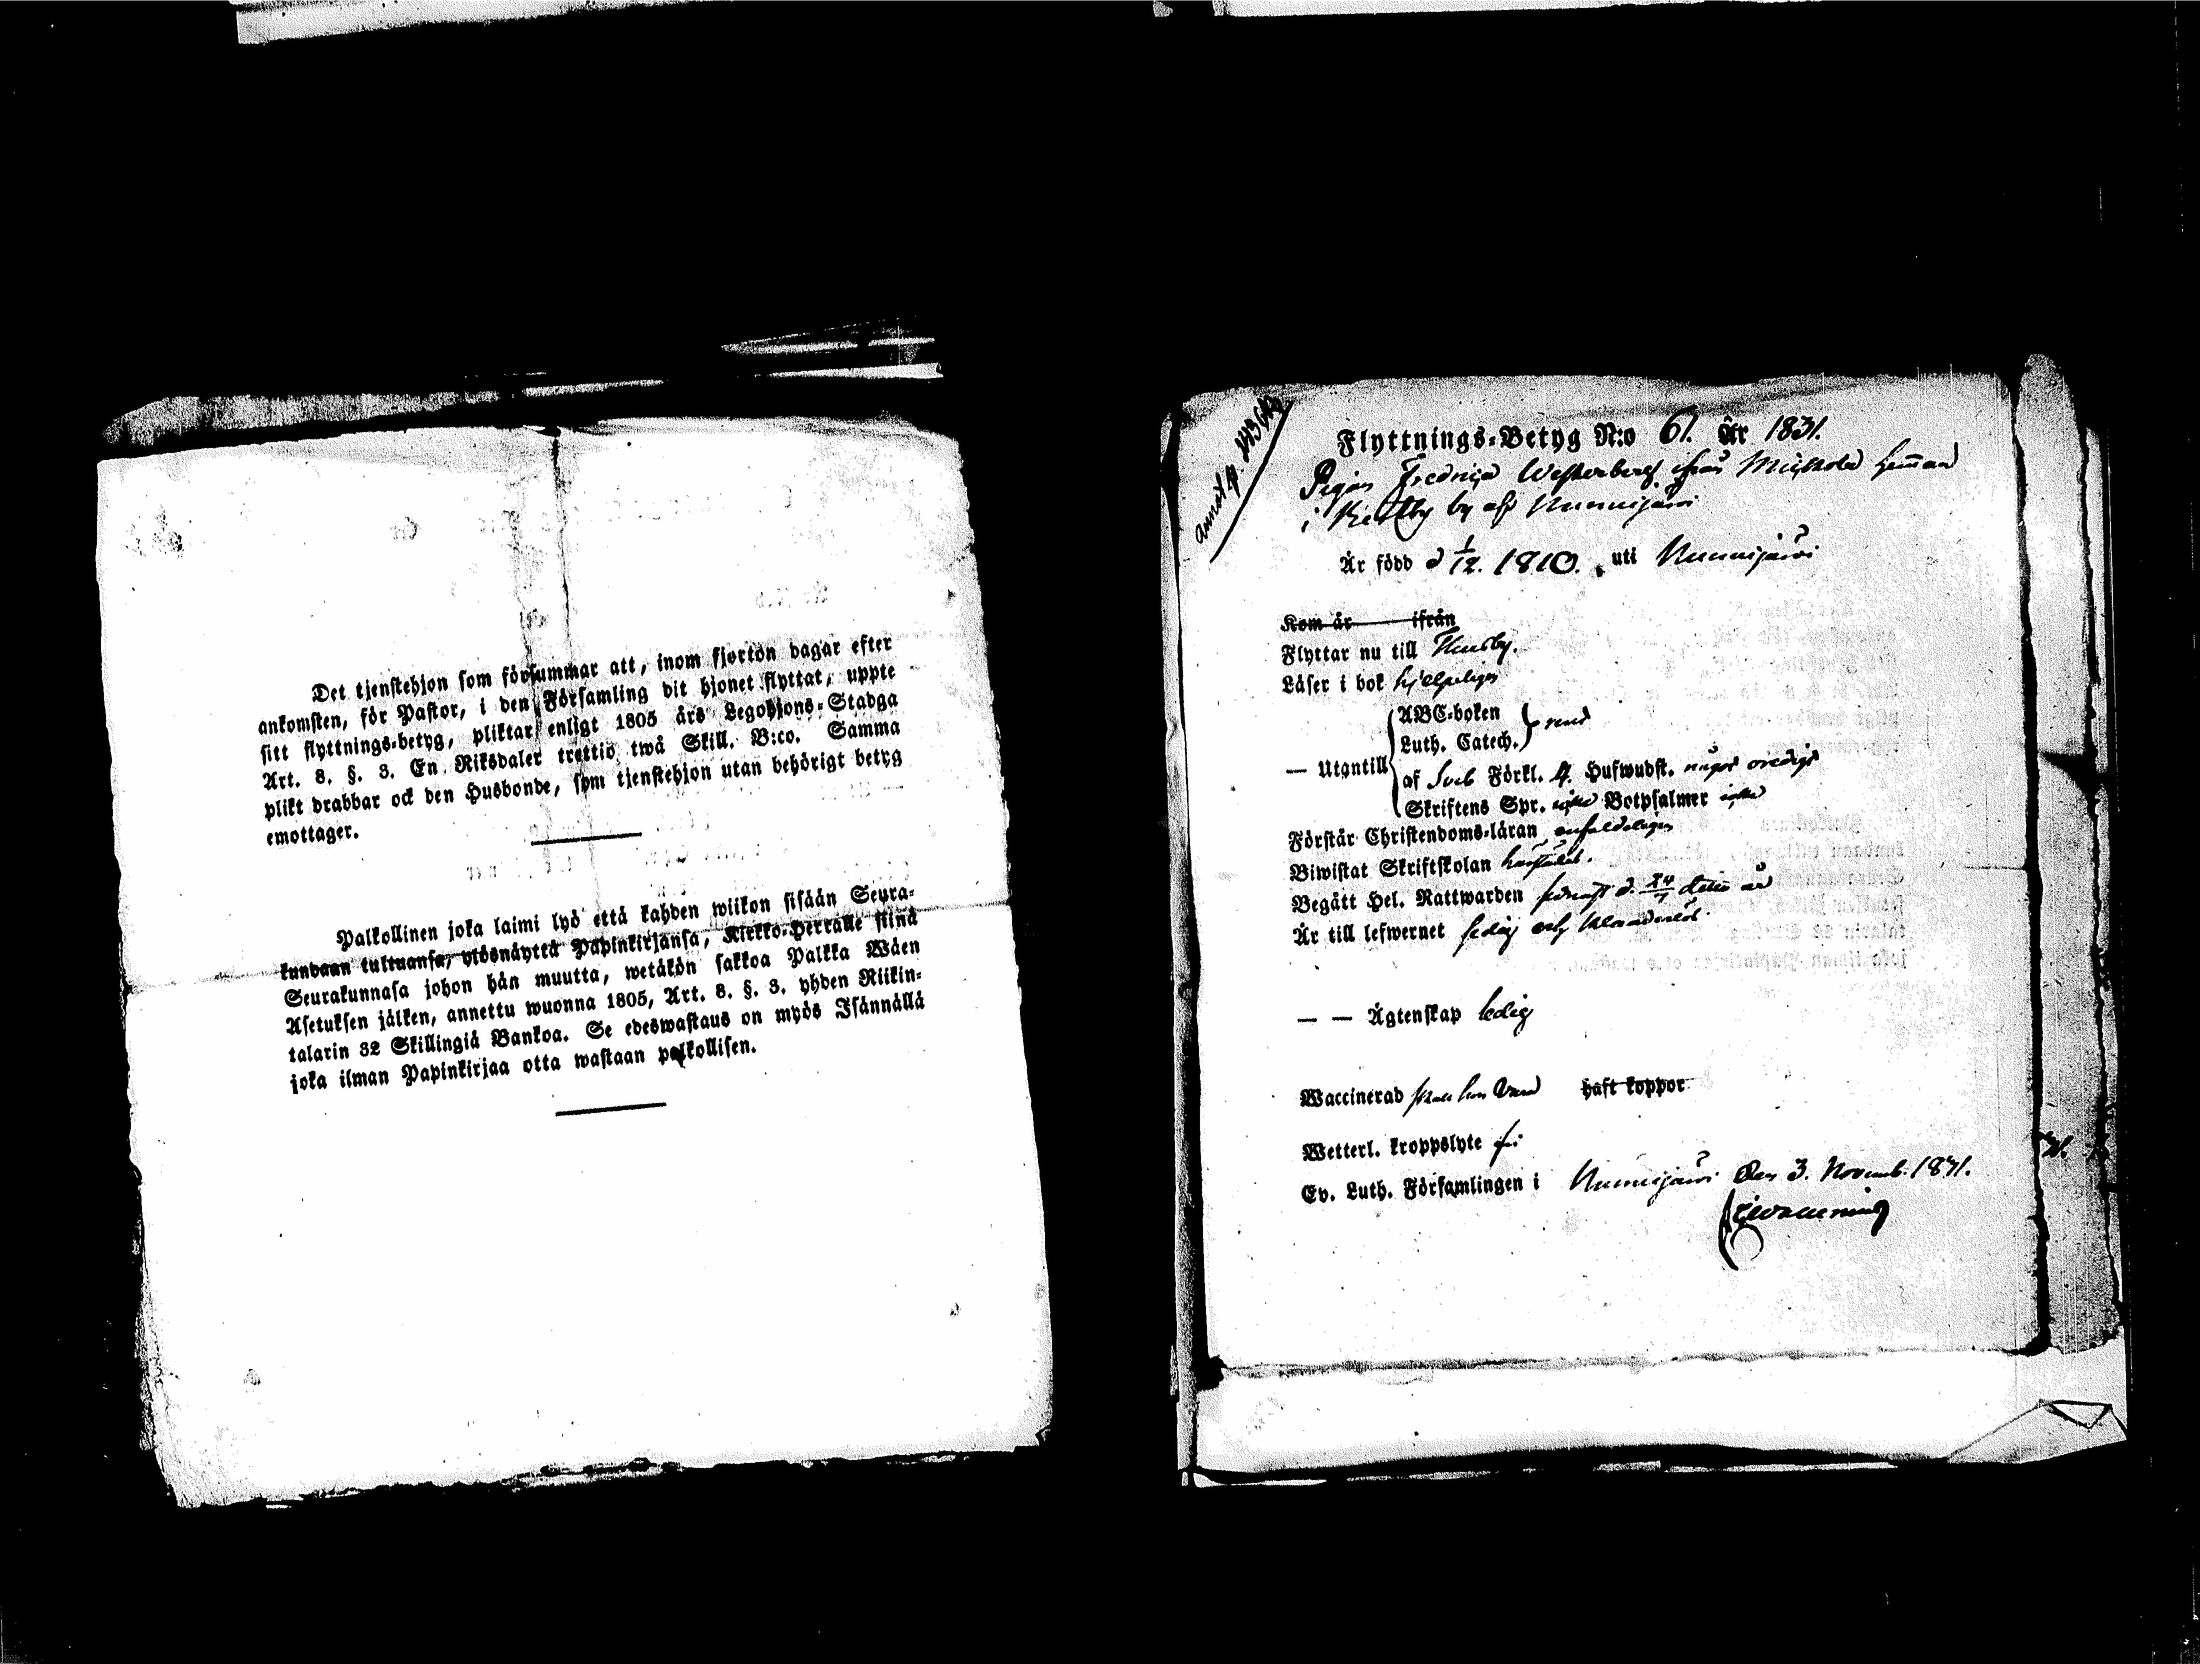 Det tjenstehjon som försummar att, inom fjorton dagar efter
ankomsten, för Pastor, i den Församling dit hjonet flyttat, uppte
sitt flyttnings-betyg, pliktar enligt 1805 års Legohjons-Stadga
Art. 8. §. 3. En Riksdaler trettio twå Skill. B:co. Samma
plikt drabbar ock den Husbonde, som tjenstehjon utan behörigt betyg
emottager.
Palkollinen joka laimi lyö että kahden wiikon sisään Seura-
kundaan tultuansa, ylösnäyttä Papinkirjansa, Kirkko-Herralle siinä
Seurakunnasa johon hän muutta, wetäkön sakkoa Palkka Wäen
Asetuksen jälken, annettu wuonna 1805, Art. 8. §. 3. yhden Riikin-
talarin 32 Skillingiä Bankoa. Se edeswastaus on myös Isännällä
joka ilman Papinkirjaa otta wastaan palkollisen.
Flyttnings-Betyg N:o 61. År 1831.
Pigan Westerberg ifrån hemman
i by af Nummijärvi
Är född d 1/12. 1810. uti Nummijärvi
Kom år ifrån
Flyttar nu till Husby.
Läser i bok hjelpeligen
ABC-boken
Luth. Catech. rent
— Utantill
af Sveb Förkl. 4. Hufwudst. något oredigt
Skriftens Spr. icke Botpsalmer icke
Förstår Christendoms-läran enfaldeligen
Biwistat Skriftskolan
Begått Hel. Nattwarden sednast d. detta år
Är till lefwernet sedig och
— — Ägtenskap ledig
Waccinerad skall hon vara haft koppor
Wetterl. kroppslyte fri
Ev. Luth. Församlingen i Nummijärvi den 3. Novemb. 1831.